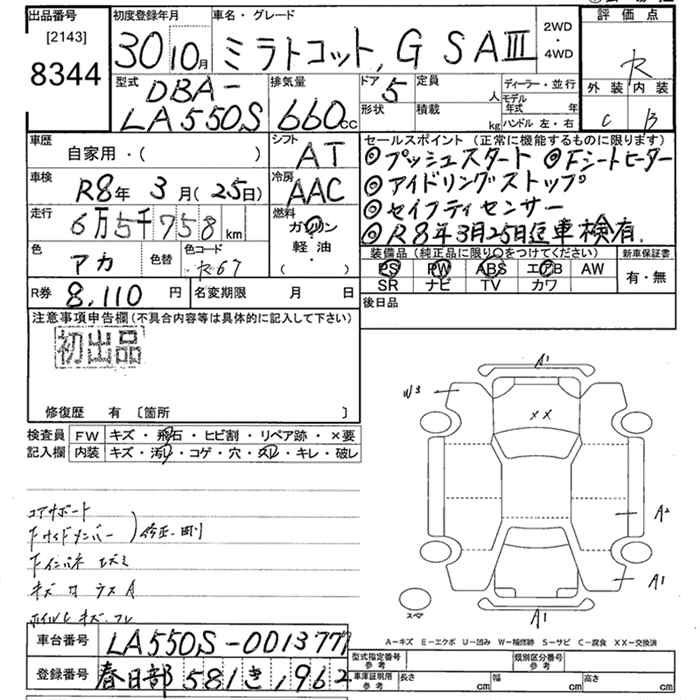 出品番号
[2143]
8344
初度登録年月
30 10月
車名・グレード
ミラトコット, G SAⅢ
2WD
・
4WD
評価点
R
外装 内装
C B
型式
DBA-
LA550S
排気量
660cc
ドア 5
形状
定員 人
積載 kg
ディーラー・並行
モデル年式 年
ハンドル 左・右
車歴
自家用・( )
シフト
AT
車検
R8年 3月(25日)
冷房
AAC
走行
6万5千758 km
燃料
ガソリン
軽油
・
( )
色
アカ
色替
色コード
R67
R券 8,110 円
名変期限 月 日
セールスポイント(正常に機能するものに限ります)
◎プッシュスタート ◎Fシートヒーター
◎アイドリングストップ
◎セイフティセンサー
◎R8年3月25日迄車検有.
装備品(純正品に限り○をつけてください)
PS PW ABS エアB AW
SR ナビ TV カワ
新車保証書
有・無
後日品
注意事項申告欄(不具合内容等は具体的に記入して下さい)
初出品
修復歴 有 〔箇所 〕
検査員
記入欄
FW キズ・飛石・ヒビ割・リペア跡・×要
内装 キズ・汚レ・コゲ・穴・スレ・キレ・破レ
コアサポート
Fサイドメンバー
修正.
Fインパネ
キズ
A1
W3
××
A2
A1
スペア
A1
A-キズ E-エクボ U-凹み W-補修跡 S-サビ C-腐食 XX-交換済
車台番号 LA550S-0013777
登録番号 春日部 581 き 1962
型式指定番号
参考
類別区分番号
参考
車庫証明用
参考
長さ cm 幅 cm 高さ cm